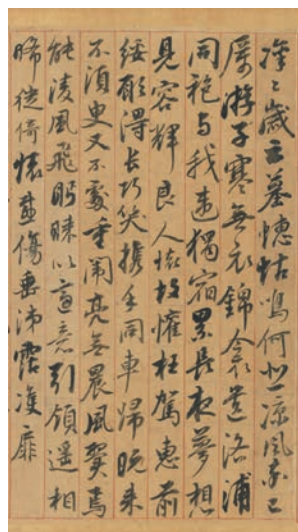 凜〻歲云暮蟪蛄鳴何悲涼風率已
厲游子寒無衣錦衾遺洛浦
同袍与我違獨宿累長夜夢想
見容輝良人惟故懽枉駕惠前
綏願得長巧笑携手同車歸既来
不須臾又不處重闈亮無晨風翼焉
能淩風飛眄睞以適意引領遥相
晞徙倚懷感傷垂涕霑雙扉